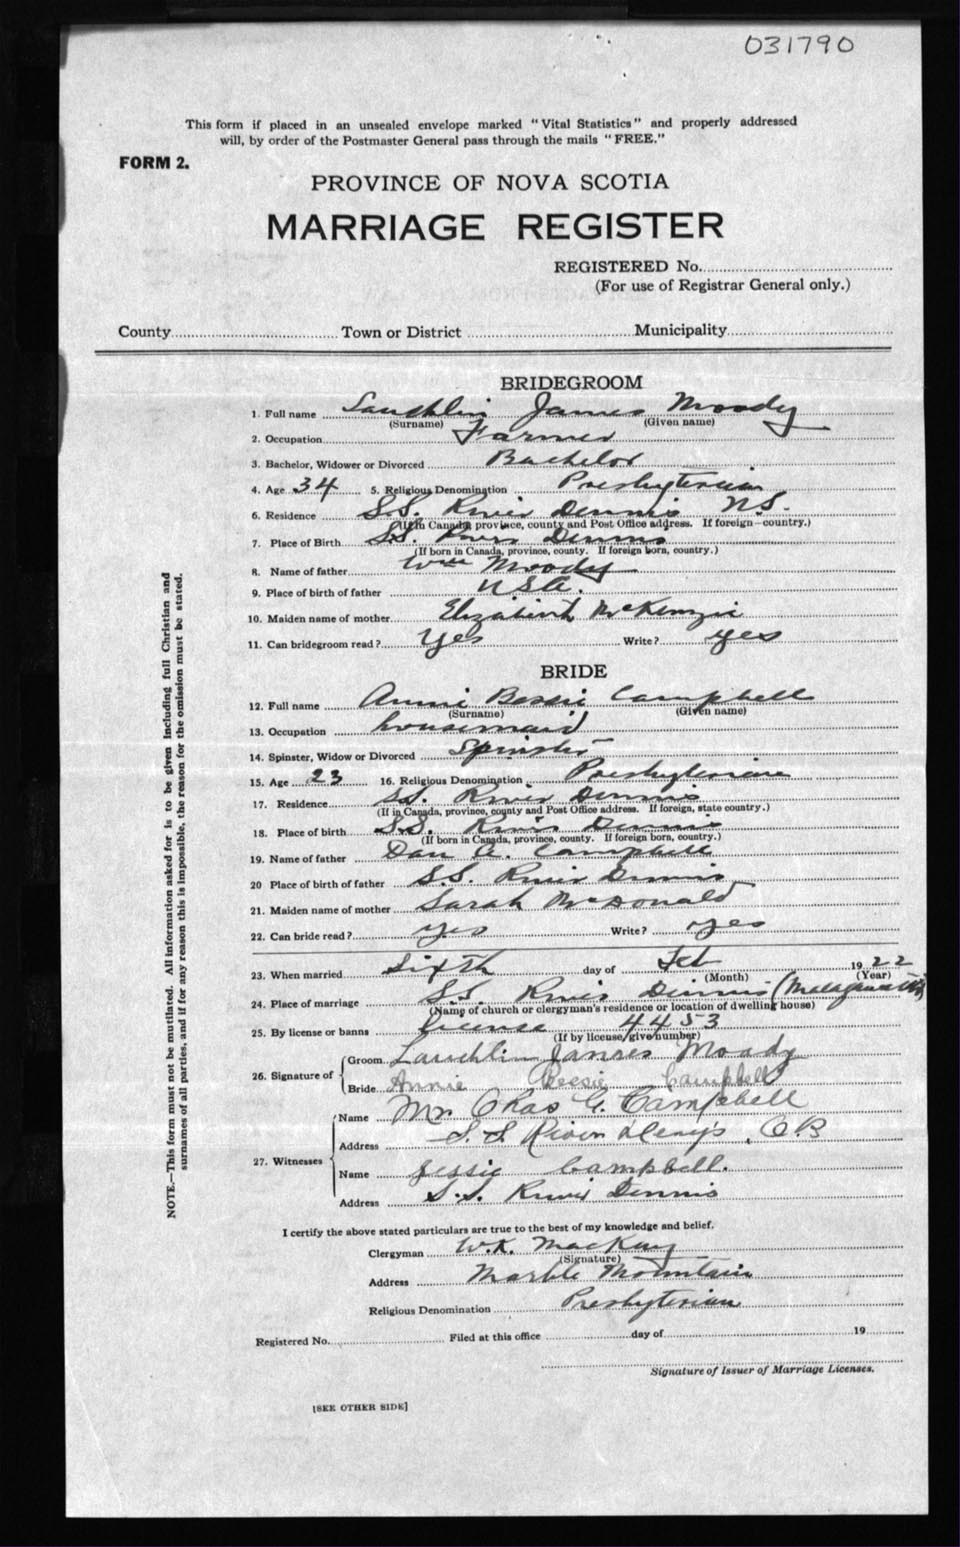 031790
This form if placed in an unsealed envelope marked "Vital Statistics" and properly addressed
will, by order of the Postmaster General pass through the mails "FREE."
FORM 2.
PROVINCE OF NOVA SCOTIA
MARRIAGE REGISTER
REGISTERED No.
(For use of Registrar General only.)
County Town or District Municipality
BRIDEGROOM
1. Full name Lauchlin James Moody
(Surname) (Given name)
2. Occupation Farmer
3. Bachelor, Widower or Divorced Bachelor
4. Age 34 5. Religious Denomination Presbyterian
6. Residence S.S. River Dennis N.S.
(If in Canada, province, county and Post Office address. If foreign—country.)
7. Place of Birth S.S. River Dennis
(If born in Canada, province, county. If foreign born, country.)
8. Name of father Wm Moody
9. Place of birth of father U.S.A.
10. Maiden name of mother Elizabeth McKenzie
11. Can bridegroom read? Yes Write? yes
BRIDE
12. Full name Annie Bessie Campbell
(Surname) (Given name)
13. Occupation housemaid
14. Spinster, Widow or Divorced Spinster
15. Age 23 16. Religious Denomination Presbyterian
17. Residence S.S. River Dennis
(If in Canada, province, county and Post Office address. If foreign, state country.)
18. Place of birth S.S. River Dennis
(If born in Canada, province, county. If foreign born, country.)
19. Name of father Dan A. Campbell
20 Place of birth of father S.S. River Dennis
21. Maiden name of mother Sarah McDonald
22. Can bride read? yes Write? yes
23. When married Sixth day of Feb 1922
(Month) (Year)
24. Place of marriage S.S. River Dennis (Malagawatch)
(Name of church or clergyman's residence or location of dwelling house)
25. By license or banns license 4453
(If by license give number)
26. Signature of Groom Lauchlin James Moody
Bride Annie Bessie Campbell
27. Witnesses Name Mr Chas G. Campbell
Address S. S. River Denys, C B
Name Jessie Campbell.
Address S.S. River Dennis
I certify the above stated particulars are true to the best of my knowledge and belief.
Clergyman W.K. MacKay
(Signature)
Address Marble Mountain
Religious Denomination Presbyterian
Registered No. Filed at this office day of 19
Signature of Issuer of Marriage Licenses.
[SEE OTHER SIDE]
NOTE.—This form must not be mutilated. All information asked for is to be given including full Christian and
surnames of all parties, and if for any reason this is impossible, the reason for the omission must be stated.